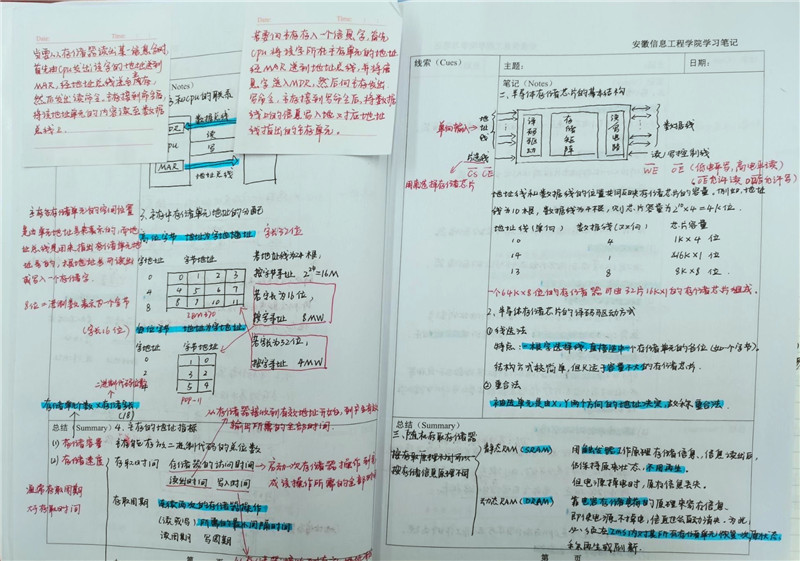 Date:
当要从存储器读出某一信息字时,
首先由CPU发出该字的地址送到
MAR,经地址总线送至主存,
然后发出读命令,主存接到命令后,
将该地址单元的内容读至数据
总线上.
Date:
当要向主存存入一个信息字,首先
CPU将该字所在主存单元的地址
经MAR送到地址总线,并将信
息字送入MDR,然后向主存发出
写命令,主存接到写命令后,将数据
线上的信息写入地址对应地址
线指出的主存单元.
(Notes)
和CPU的联系
数据总线
读
CPU
写
MAR
地址总线
主存各存储单元的空间位置
是由单元地址号来表示的,而地
址总线是用来指出存储单元地
址号的,根据地址号可读出
或写入一个存储字.
3.主存中存储单元地址的分配
高位字节 地址为字地址 字长32位
字地址 字节地址
0 0 1 2 3
4 4 5 6 7
8 8 9 10 11
IBM 370
若地址线为24根,
按字节寻址 2^24=16M
若字长为16位,
按字寻址 8MW
若字长为32位,
按字寻址 4MW
8位二进制数表示一个字节
(字长16位)
低位字节 地址为字地址
字地址 字节地址
0 1 0
2 3 2
4 5 4
PDP-11
二进制代码位数
存储单元个数×存储字长
(/8)
从存储器接收到有效地址开始,到产生有效
输出所需的全部时间.
总结(Summary) 4.主存的技术指标
(1)存储容量 主存能存放二进制代码的总位数
(2)存储速度 存取时间 存储器的访问时间→启动一次存储器操作到完
成该操作所需的全部时间
读出时间 写入时间
通常存取周期
大于存取时间
存取周期 连续两次的存储器操作
(读或写)所需的最小间隔时间
读周期 写周期
安徽信息工程学院学习笔记
线索(Cues)
主题:
日期:
笔记(Notes)
二、半导体存储芯片的基本结构
单向输入
地址线
译码驱动
存储矩阵
读写电路
数据线
片选线
CS CE
用来选择存储芯片
读/写控制线
WE OE
(低电平写,高电平读)
地址线和数据线的位数共同反映存储芯片的容量,例如,地址
线为10根,数据线为4根,则芯片容量为2^10×4=4K位.
地址线(单向) 数据线(双向) 芯片容量
10 4 1K×4位
14 1 16K×1位
13 8 8K×8位
一个64K×8位的存储器可由32片16K×1的存储芯片组成.
2、半导体存储芯片的译码驱动方式
①线选法
特点:一根字选择线,直接选中一个存储单元的各位(如一个字节).
结构方式较简单,但只适于容量不大的存储芯片.
②重合法
被选单元是由X、Y两个方向的地址决定,故称重合法.
总结(Summary)
三、随机存取存储器
按存储信息原理不同
静态RAM(SRAM)
用触发器工作原理存储信息,信息读出后,
仍保持原来状态,不用再生.
但电源掉电时,原存信息丢失.
动态RAM(DRAM)
靠电容存储电荷的原理来寄存信息.
即使电源不掉电,信息也会自动消失.为此,
必须在2ms内对其所有存储单元恢复一次原状态,
称再生或刷新.
第 页